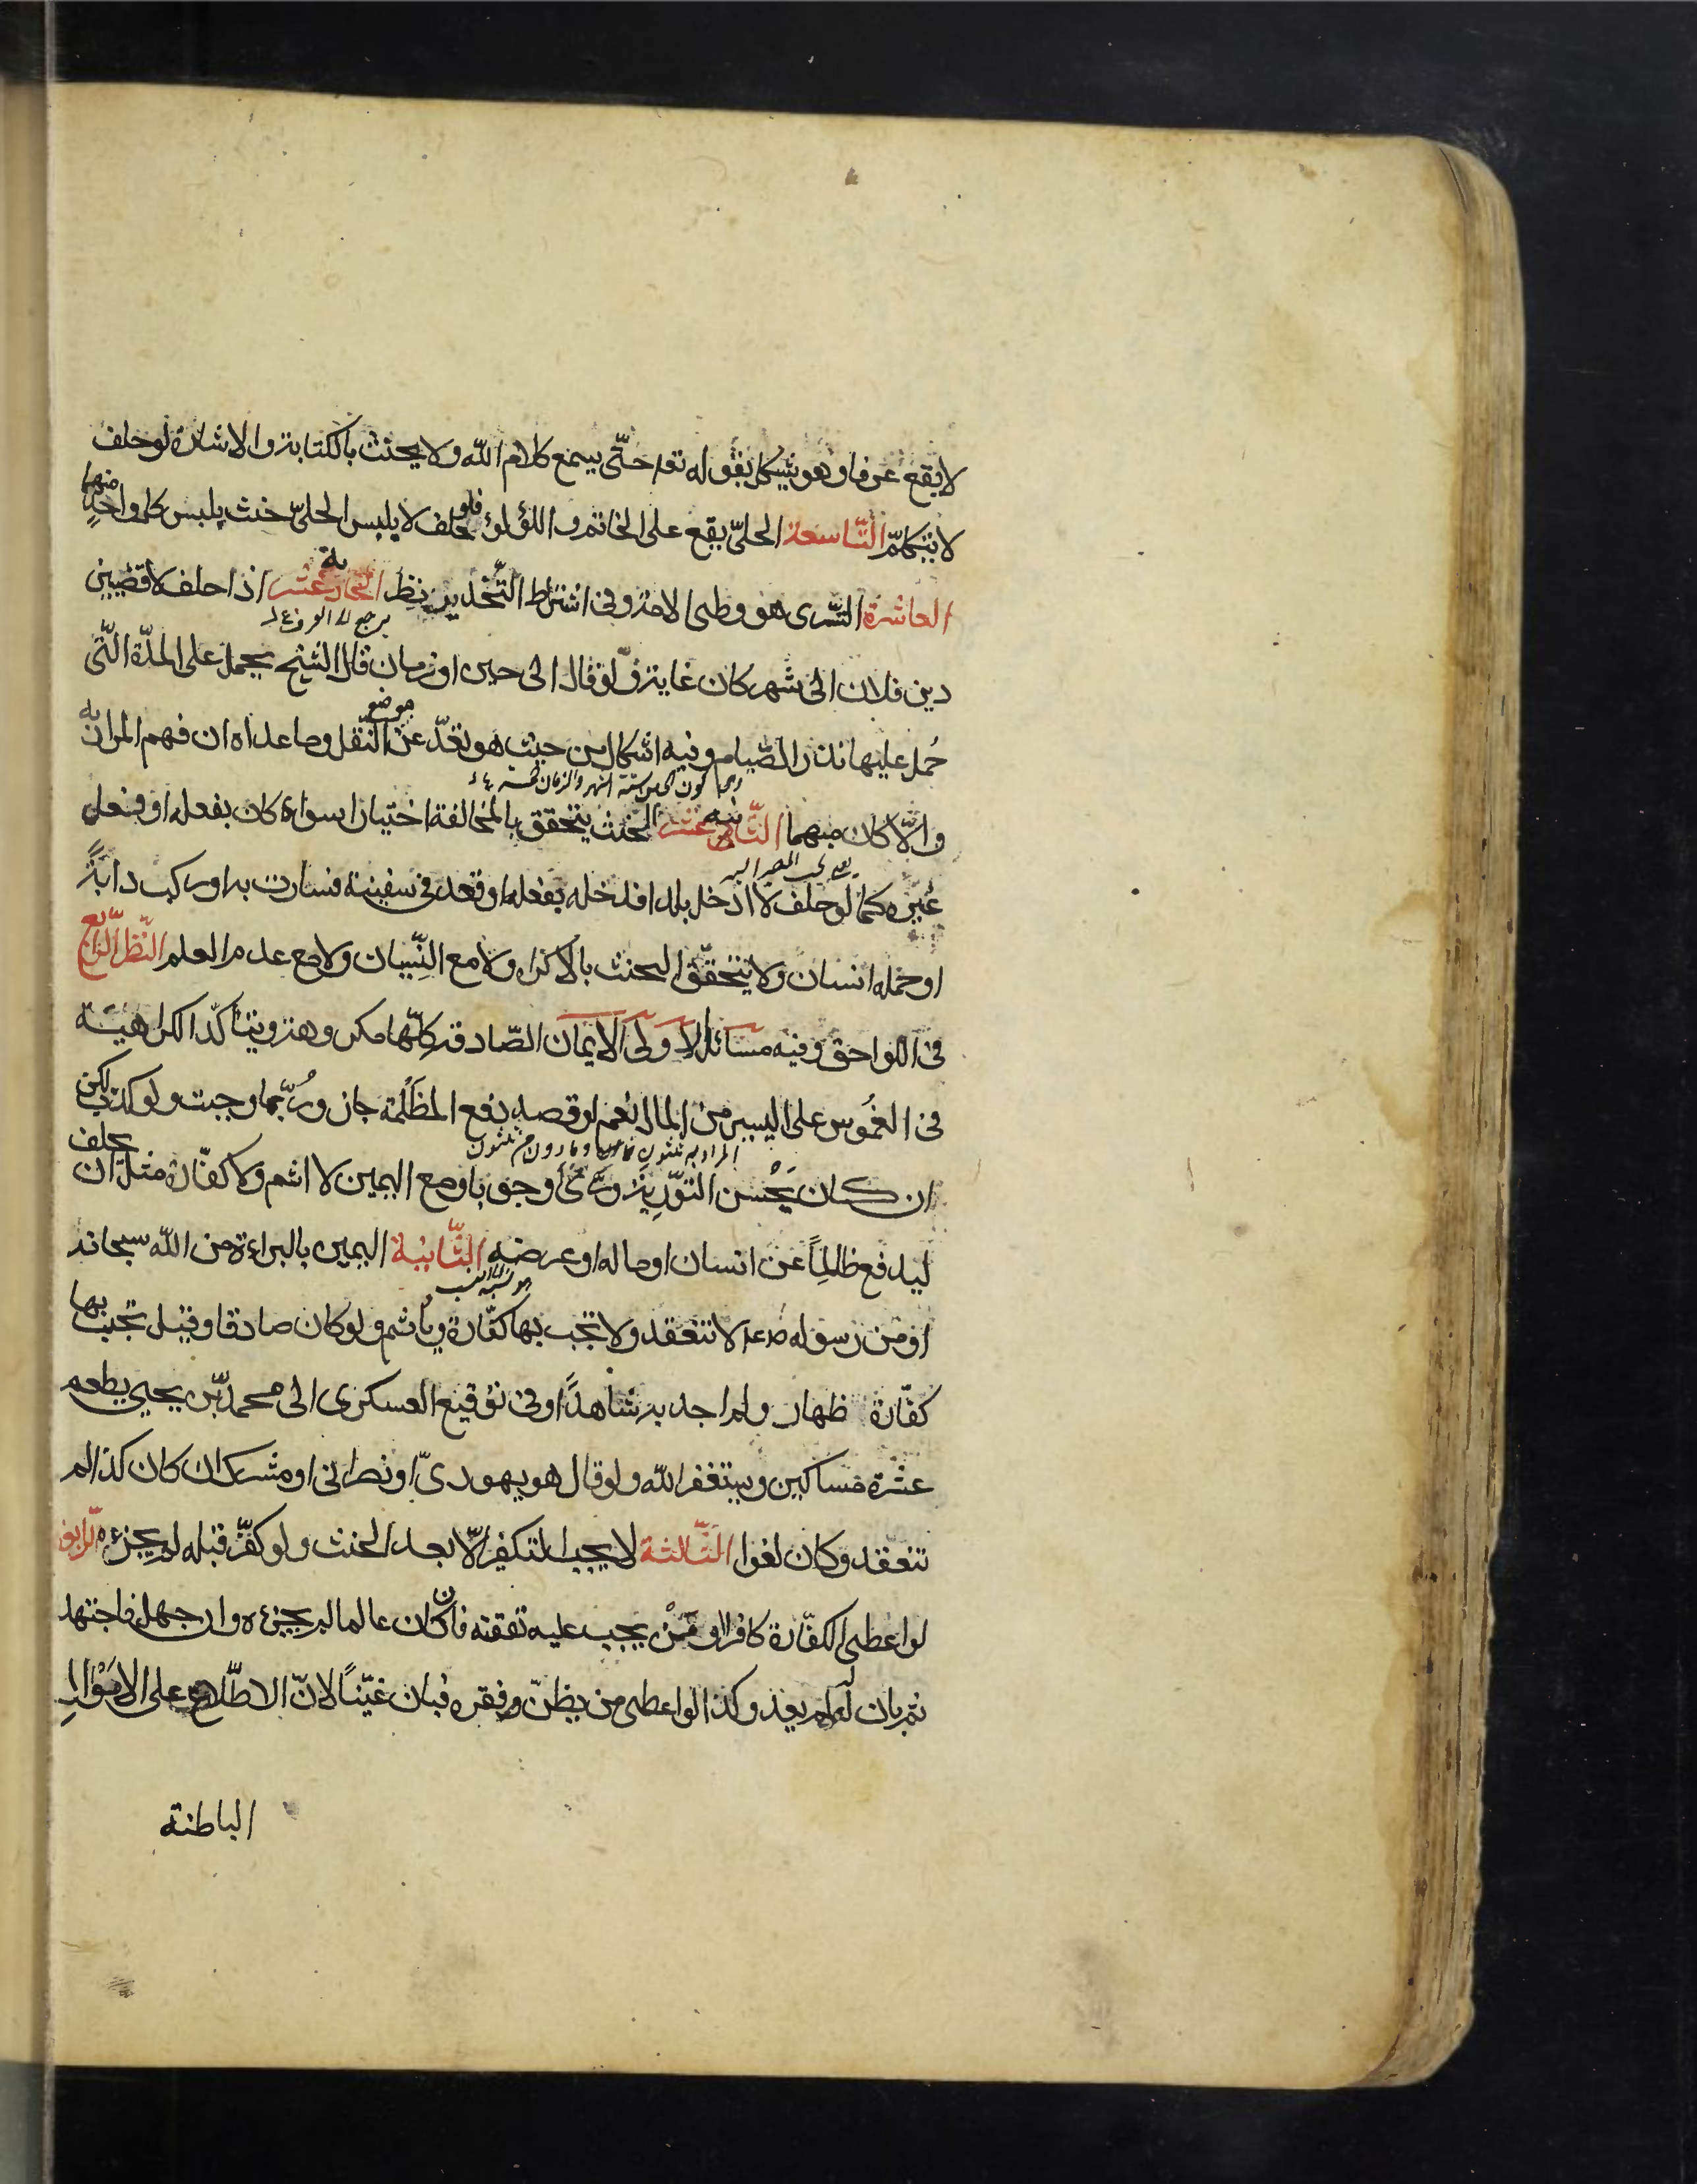 لا يقع عرفا وهو يشكل بقوله تعا حتّى يسمع كلام الله ولا يحنث بالكتابة والاشارة لو حلف
لا يتكلم التّاسعة الحلىّ يقع على الخاتم و اللؤلؤ فلو حلف لا يلبس الحلىّ حنث بلبس كل واحدٍ منهما
العاشرة التّسرى هو وطى الامة وفى اشتراط التّخدير نظر الحاديه عشر اذا حلف لاقضين
يرجع الى العرف
دين فلان الى شهر كان غاية ولو قال الى حين او زمان قال الشيخ يحمل على المدّة الّتى
حُمل عليها نذر الصّيام وفيه اشكال من حيث هو تعدّ عن موضع النّقل وما عداه ان فهم المراد به
والّا كان مبهما الثّانيه عشر الحنث يتحقق بالمخالفة اختيارا سواء كان بفعله او فعل
غيره كما لو حلف لا ادخل بلدا فدخله بفعله او قعد فى سفينة فسارت به او ركب دابّةً
او حمله انسان ولا يتحقّق الحنث بالاكراه ولا مع النّسيان ولا مع عدم العلم النّظر الرّابع
فى اللواحق وفيه مسائل الاولى الايمان الصّادقة كلّها مكروهة ويتأكّد الكراهية
فى الغموس على اليسير من المال نعم لو قصد دفع المظلمة جاز ورُبّما وجبت ولو كذب لكن
ان كان يَحْسن التّورِية ورّى وجوبا ومع اليمين لا اثم ولا كفّارة مثل ان يحلف
ليدفع ظالماً عن انسان او ماله او عرضه الثّانية اليمين بالبراءة من الله سبحانه
او من رسوله صلعم لا تنعقد ولا تجب بها كفّارة ويأثم ولو كان صادقا وقيل تجب بها
كفّارة ظهار ولم اجد به شاهداً وفى توقيع العسكرى الى محمد بن يحيى يطعم
عشرة مساكين ويستغفر الله ولو قال هو يهودىّ او نصرانى او مشرك ان كان كذا لم
تنعقد وكان لغوا الثّالثة لا يجب التكفير الّا بعد الحنث ولو كفّر قبله لم يجزءه الرابعة
لو اعطى الكفّارة كافرا او مَنْ يجب عليه نفقته فان كان عالما لم يجزءه وان جهل فاجتهد
ثم بان له لم يعد وكذا لو اعطى من يظنّ فقره فبان غنيّاً لانّ الاطّلاع على الاحوال
الباطنة